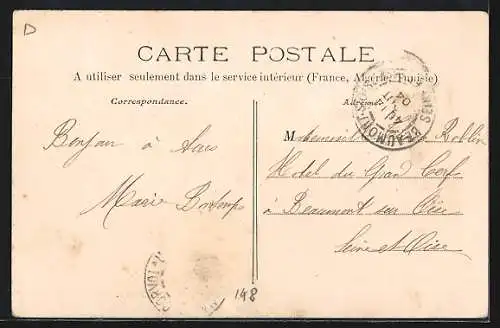 D
CARTE POSTALE
A utiliser seulement dans le service intérieur (France, Algérie, Tunisie)
Correspondance.
Adresse
Bonjour à
Marie
M
Hotel du Grand Cerf
à Beaumont sur Oise
Seine et Oise
BEAUMONT
04
148